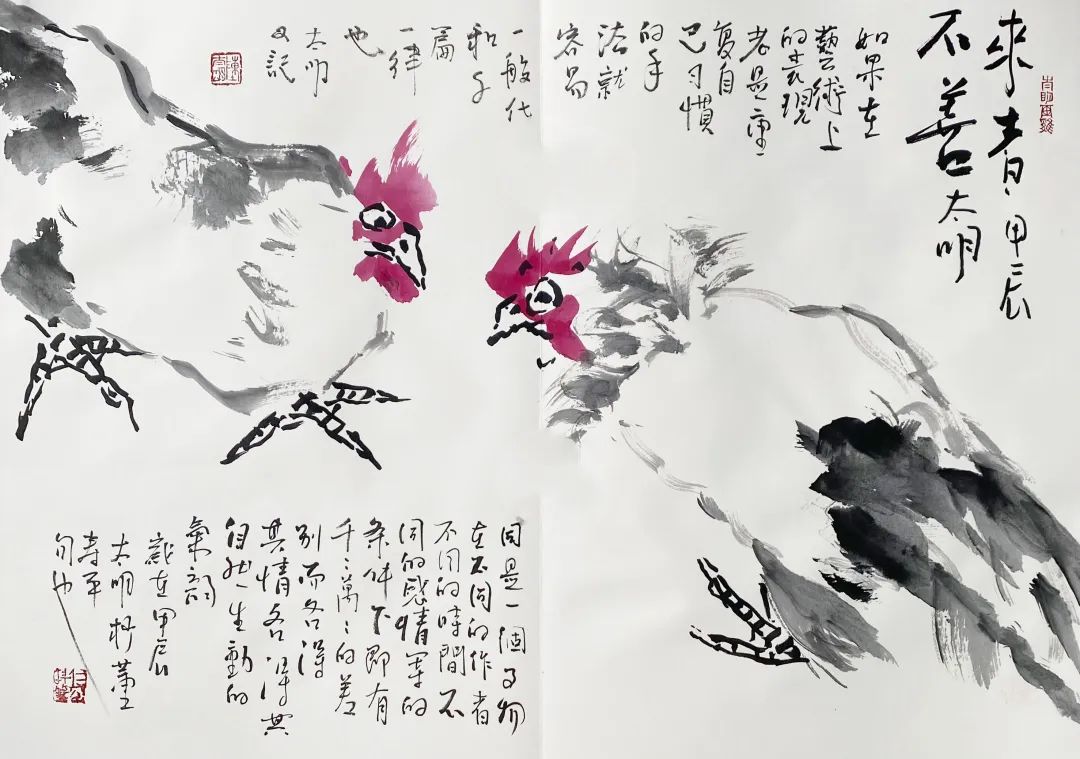 來者甲辰
不善太明
如果在
藝術上
的表現
老是重
復自
己习慣
的手
法就
容易
一般化
和千
篇
一律
也
太明
又記
同是一個事物
在不同的作者
不同的時間不
同的感情等的
条件下即有
千〻萬〻的差
別而各得
其情各得其
自然生動的
氣韵
歲在甲辰
太明抄董
壽平
句也